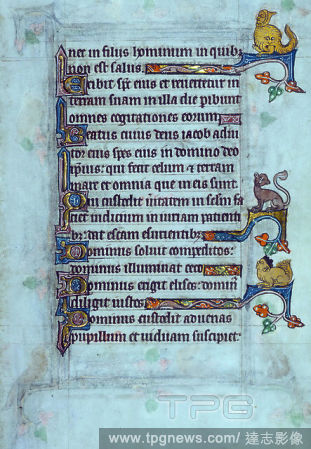 nec in filiis hominum in quib
non est salus
Exibit spc eius et revertetur in
terram suam in illa die pibunt
omnes cogitationes eorum
Beatus cuius deus iacob adiu
tor eius spes eius in domino deo
ipsius: qui fecit celum et terram
mare et omnia que in eis sunt
Qui custodit
facit iudicium iniuriam patientib
dat escam esurientibus
Dominus soluit compeditos:
dominus illuminat cecos
Dominus erigit elisos: domin
diligit iustos
Dominus custodit aduenas
pupillum et uiduam suscipiet
TPG
www.tpgnews.com/ 達志影像